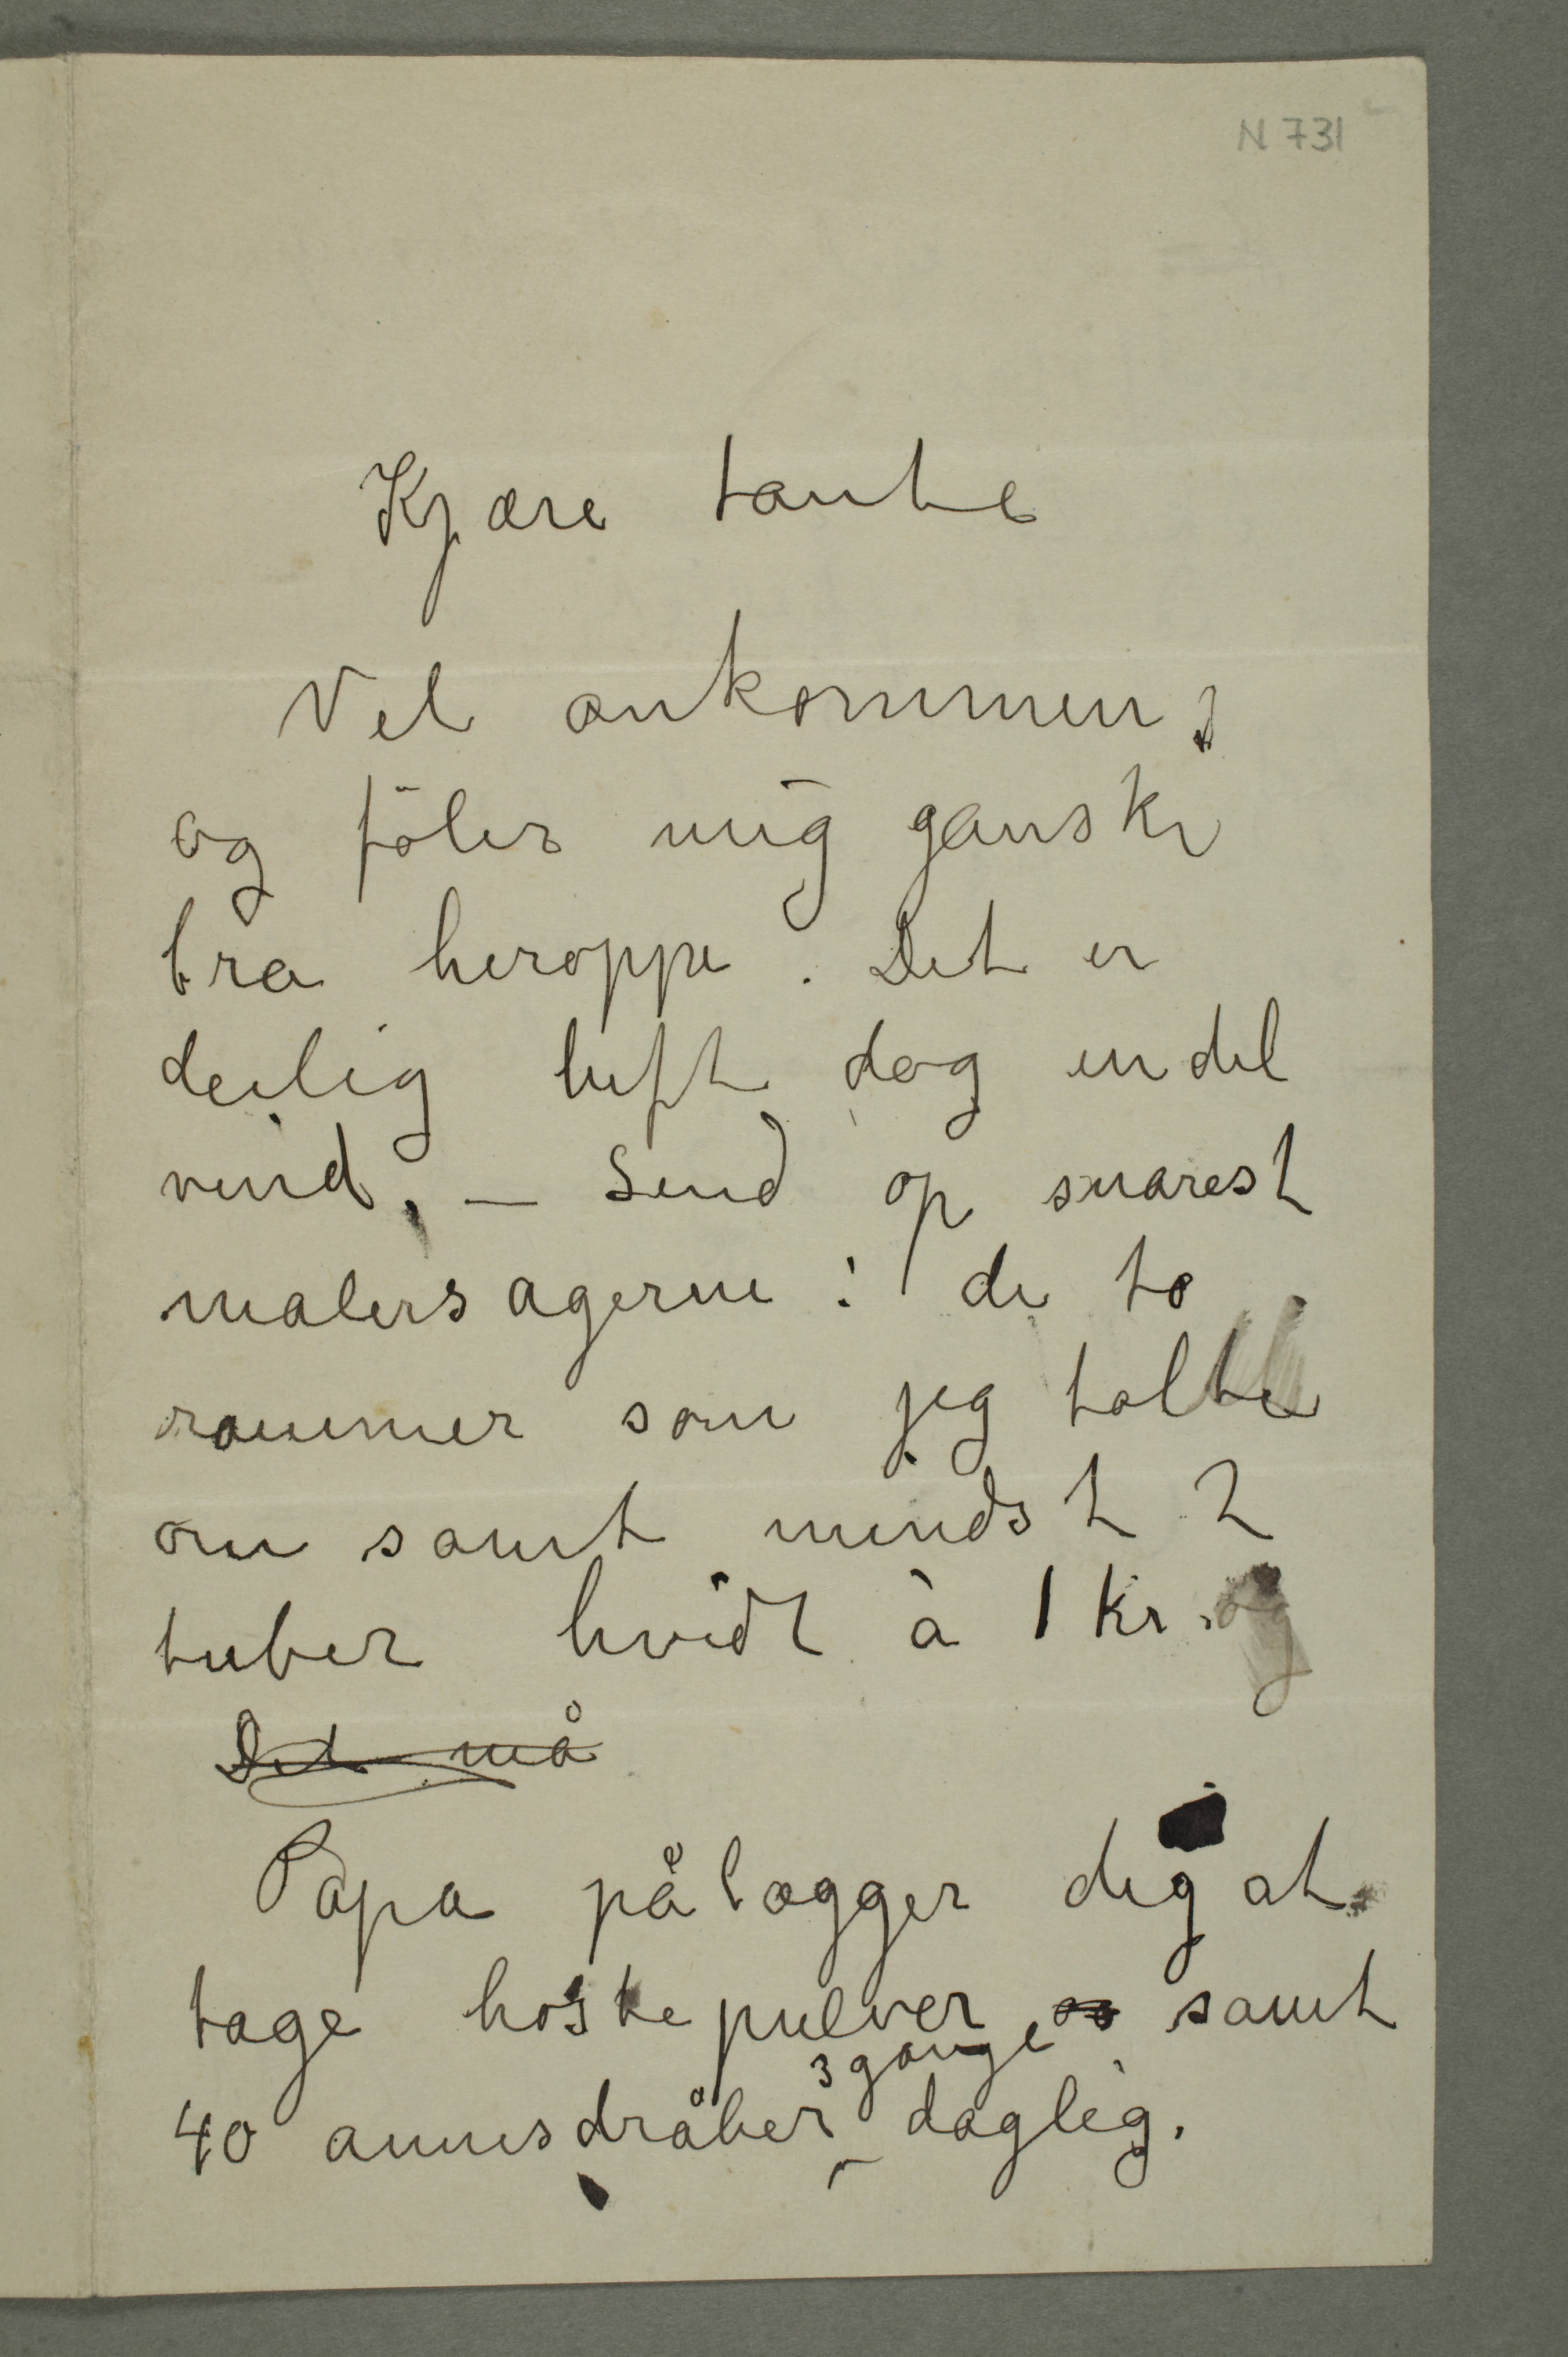 N 731
Kjære tante
Vel ankommen;
og föler mig ganske
bra heroppe. Det er
deilig luft dog endel
vind. – Send op snarest
malersagerne: de to
rammer som jeg talte
om samt mindst 2
tuber hvidt à 1 kr. og
Det må
Papa pålægger dig at
tage hostepulver og samt
3 gange
40 annisdråber daglig.